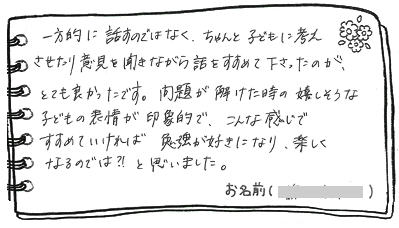 一方的に話すのではなく、ちゃんと子どもに考え
させたり意見を聞きながら話をすすめて下さったのが、
とても良かったです。問題が解けた時の嬉しそうな
子どもの表情が印象的で、こんな感じで
すすめていければ勉強が好きになり、楽しく
なるのでは?!と思いました。
お名前( )